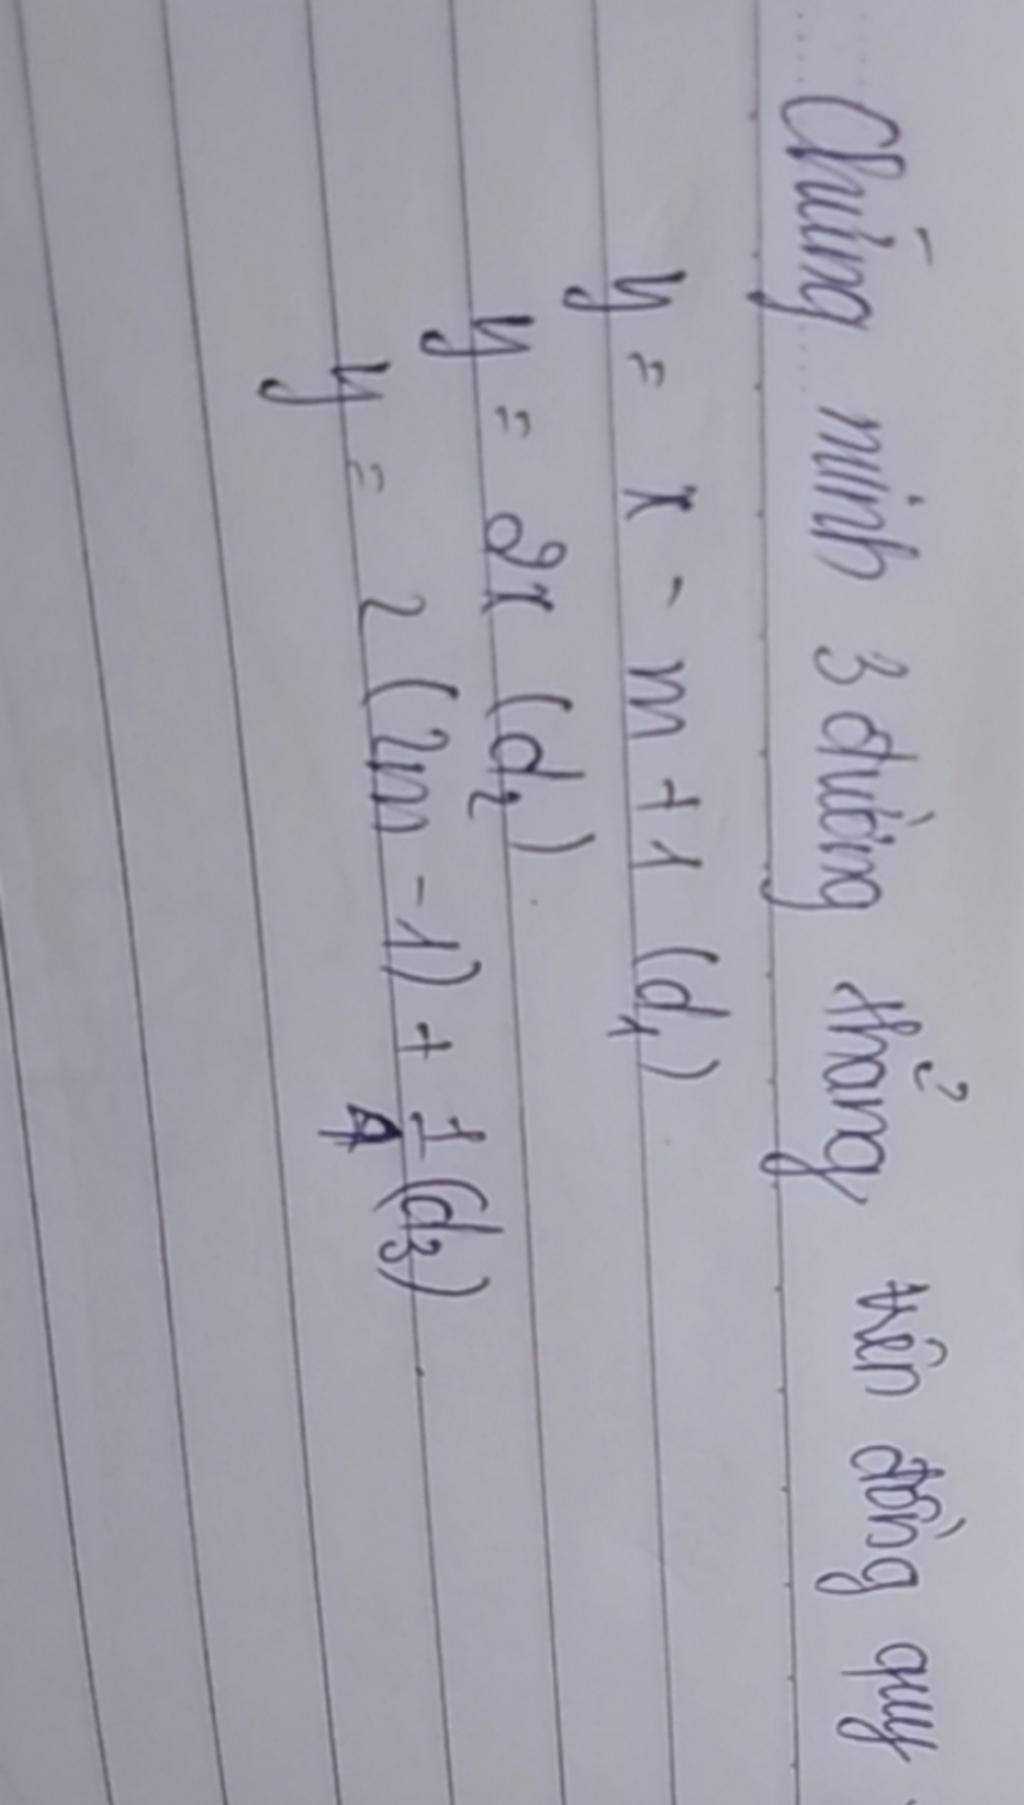 Chứng minh 3 đường thẳng trên đồng quy
y = x - m + 1 (d1)
y = 2x (d2)
y = 2(2m - 1) + 1/4 (d3)